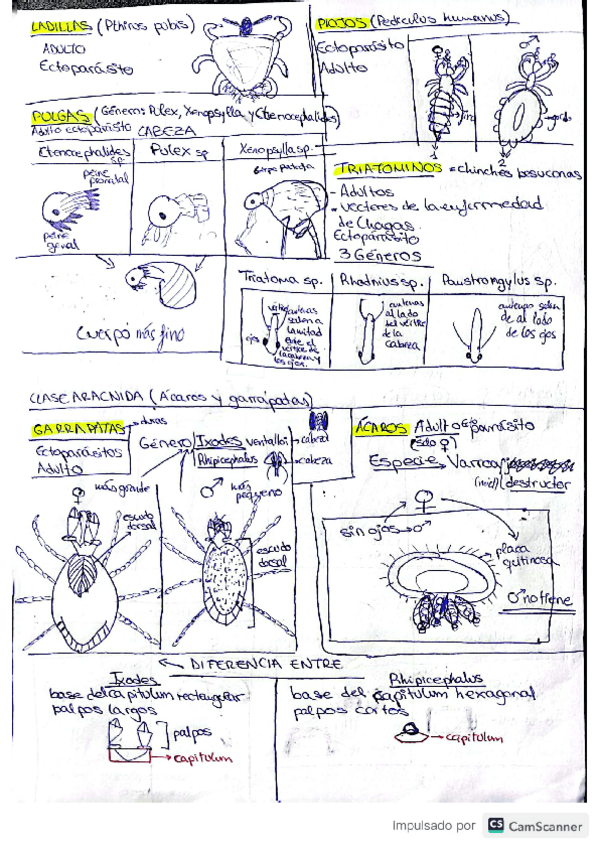 LADILLAS (Pthirus pubis)
ADULTO
Ectoparásito
PIOJOS (Pediculus humanus)
Ectoparásito
Adulto
♀
♂
1
2
PULGAS (Géneros: Pulex, Xenopsylla y Ctenocephalides)
Adulto ectoparásito CABEZA
Ctenocephalides sp.
Pulex sp
Xenopsylla sp.
peine pronotal
peine genal
Cuerpo más fino
TRIATOMINOS = chinches besuconas
- Adultos
- vectores de la enfermedad
de Chagas.
Ectoparásito
3 Géneros
Triatoma sp.
Rhodnius sp.
Paustrongylus sp.
ojos
antenas
salen a
la mitad
entre el
vértice de
la cabeza y
los ojos.
antenas
al lado
del vértice
de la
cabeza
antenas salen
de al lado
de los ojos
CLASE ARACNIDA (Ácaros y garrapatas)
GARRAPATAS → duras
Ectoparásitos
Adulto
Género
Ixodes ventallol → cabeza
Rhipicephalus → cabeza
♀ más grande
♂ más pequeño
escudo
dorsal
escudo
dorsal
ÁCAROS Adulto Ectoparásito
(sdo ♀)
Especie → Varroa
(miel) destructor
♀
sin ojos → ♂
placa
quitinosa
♂ no tiene
← DIFERENCIA ENTRE
Ixodes
base del capitulum rectangular
palpos largos
palpos
→ capitulum
Rhipicephalus
base del capitulum hexagonal
palpos cortos
→ capitulum
Impulsado por CS CamScanner